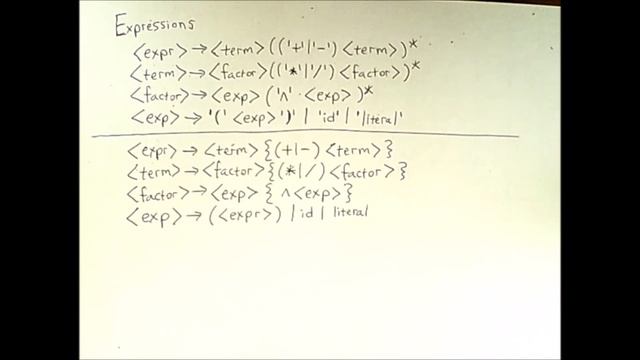 Expressions
<expr> → <term> (('+'|'-') <term>)*
<term> → <factor> (('*'|'/') <factor>)*
<factor> → <exp> ('^' <exp>)*
<exp> → '(' <exp> ')' | 'id' | 'literal'
<expr> → <term> {(+|-) <term>}
<term> → <factor> {(*|/) <factor>}
<factor> → <exp> { ^ <exp>}
<exp> → (<expr>) | id | literal